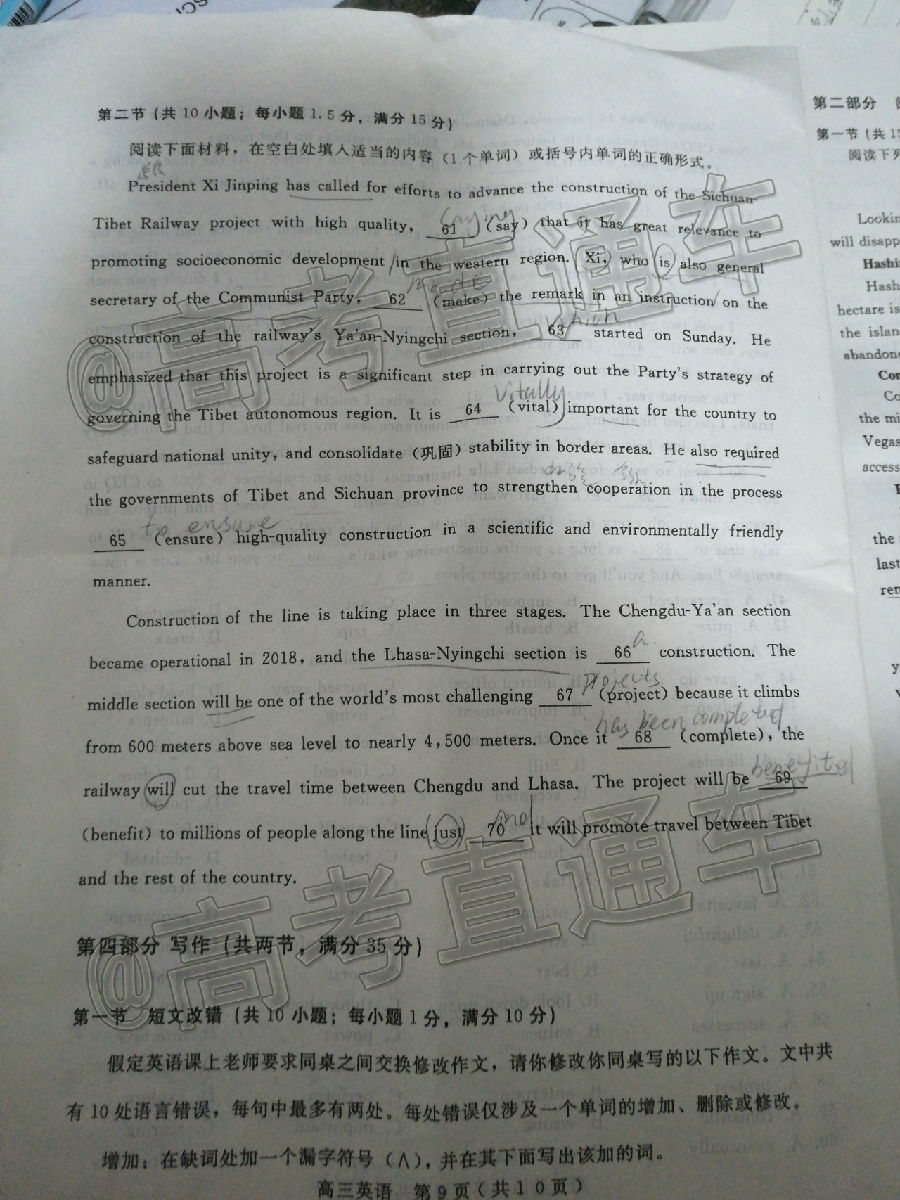 第二节(共10小题;每小题1.5分,满分15分)
阅读下面材料,在空白处填入适当的内容(1个单词)或括号内单词的正确形式。
President Xi Jinping has called for efforts to advance the construction of the Sichuan-
Tibet Railway project with high quality, 61 (say) that it has great relevance to
saying
promoting socioeconomic development in the western region. Xi, who is also general
secretary of the Communist Party, 62 (make) the remark in an instruction on the
made
construction of the railway's Ya'an-Nyingchi section, 63 started on Sunday. He
emphasized that this project is a significant step in carrying out the Party's strategy of
governing the Tibet autonomous region. It is 64 (vital) important for the country to
vitally
safeguard national unity, and consolidate (巩固) stability in border areas. He also required
the governments of Tibet and Sichuan province to strengthen cooperation in the process
65 (ensure) high-quality construction in a scientific and environmentally friendly
to ensure
manner.
Construction of the line is taking place in three stages. The Chengdu-Ya'an section
became operational in 2018, and the Lhasa-Nyingchi section is 66 construction. The
a
middle section will be one of the world's most challenging 67 (project) because it climbs
projects
from 600 meters above sea level to nearly 4,500 meters. Once it 68 (complete), the
has been completed
railway will cut the travel time between Chengdu and Lhasa. The project will be 69
(benefit) to millions of people along the line just 70 it will promote travel between Tibet
and the rest of the country.
第四部分 写作(共两节,满分35分)
第一节 短文改错(共10小题;每小题1分,满分10分)
假定英语课上老师要求同桌之间交换修改作文,请你修改你同桌写的以下作文。文中共
有10处语言错误,每句中最多有两处。每处错误仅涉及一个单词的增加、删除或修改。
增加:在缺词处加一个漏字符号(∧),并在其下面写出该加的词。
高三英语 第9页(共10页)
@高考直通车
@高考直通车
第二部分
第一节(共1
阅读下列
Lookin
will disapp
Hashi
Hash
hectare is
the islan
abandon
Co
Co
the mi
Vegas
access
the
last
ren